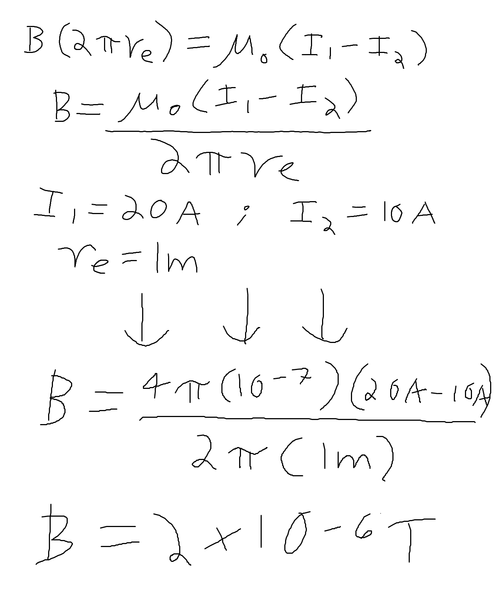 B(2πrₑ) = μ₀(I₁ - I₂)
B = μ₀(I₁ - I₂)
2πrₑ
I₁ = 20A ; I₂ = 10A
rₑ = 1m
↓ ↓ ↓
B = 4π(10⁻⁷)(20A - 10A)
2π(1m)
B = 2 × 10⁻⁶ T